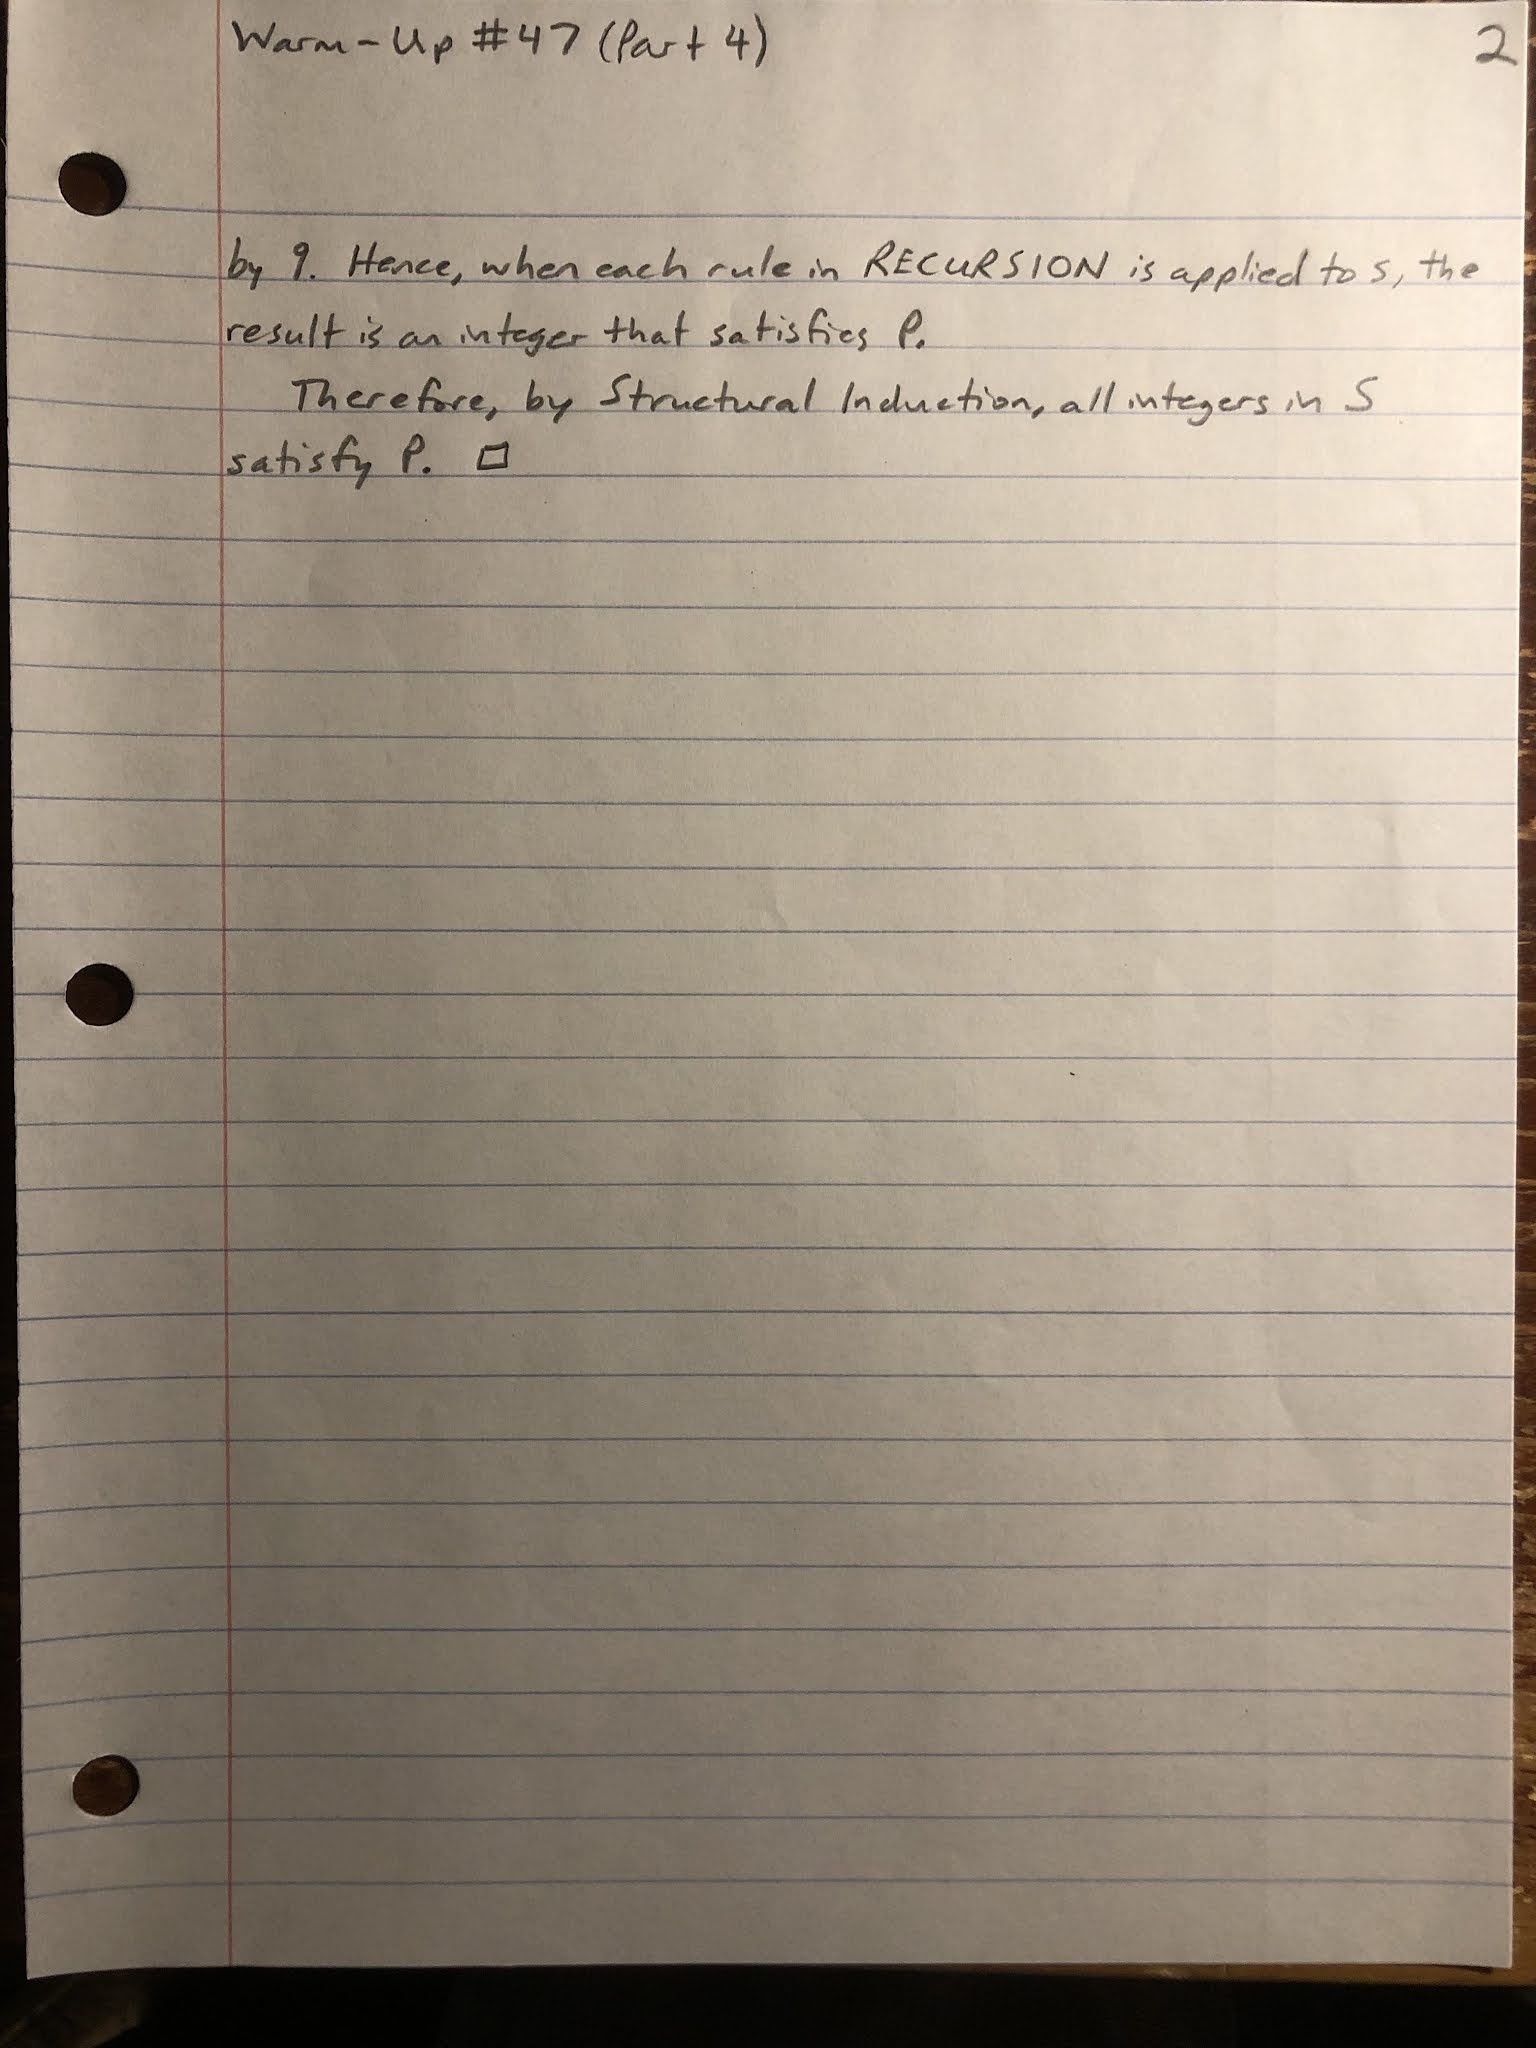 Warm-Up #47 (Part 4)
2
by 9. Hence, when each rule in RECURSION is applied to s, the
result is an integer that satisfies P.
Therefore, by Structural Induction, all integers in S
satisfy P. □